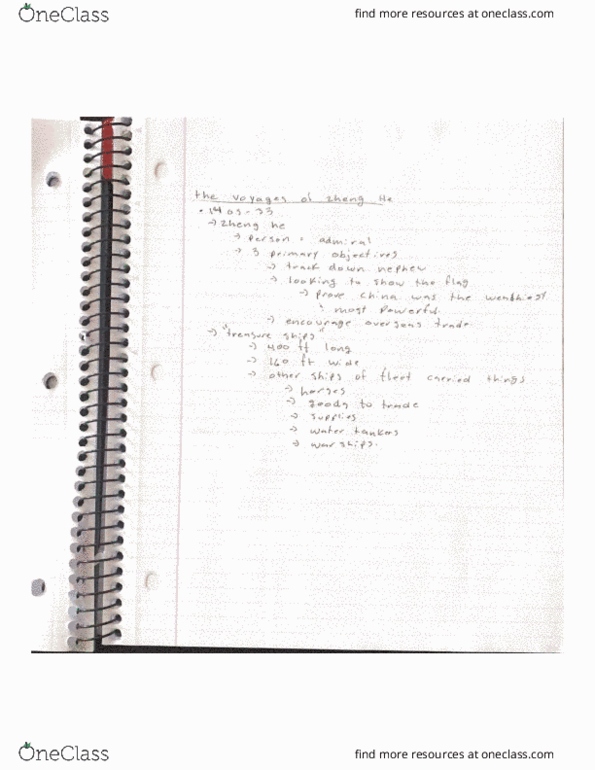 OneClass
find more resources at oneclass.com
the voyages of zheng He
• 1405-33
→ zheng he
→ person • admiral
→ 3 primary objectives
→ track down nephew
→ looking to show the flag
→ prove china was the wealthiest
most powerful.
→ encourage overseas trade
→ "treasure ships"
→ 400 ft long
→ 160 ft wide
→ other ships of fleet carried things
→ horses
→ goods to trade
→ supplies
→ water tankers
→ war ships.
OneClass
find more resources at oneclass.com